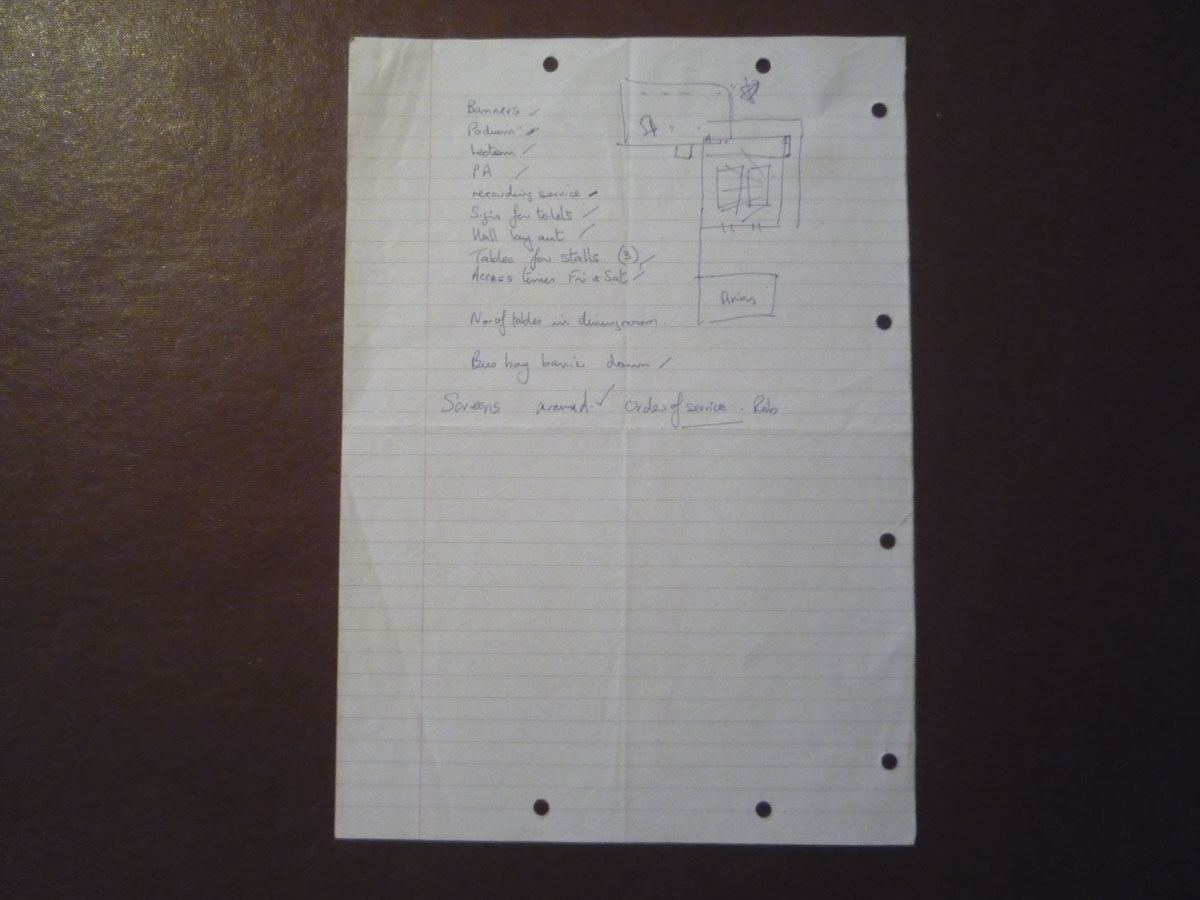 Banners
Podium
Lectern
PA
recording service
Signs for toilets
Hall lay out
Tables for stalls (3)
Access times Fri & Sat
No of tables in dining room.
Bus bay barrier down
Screens around. Order of service. Rob
Dining